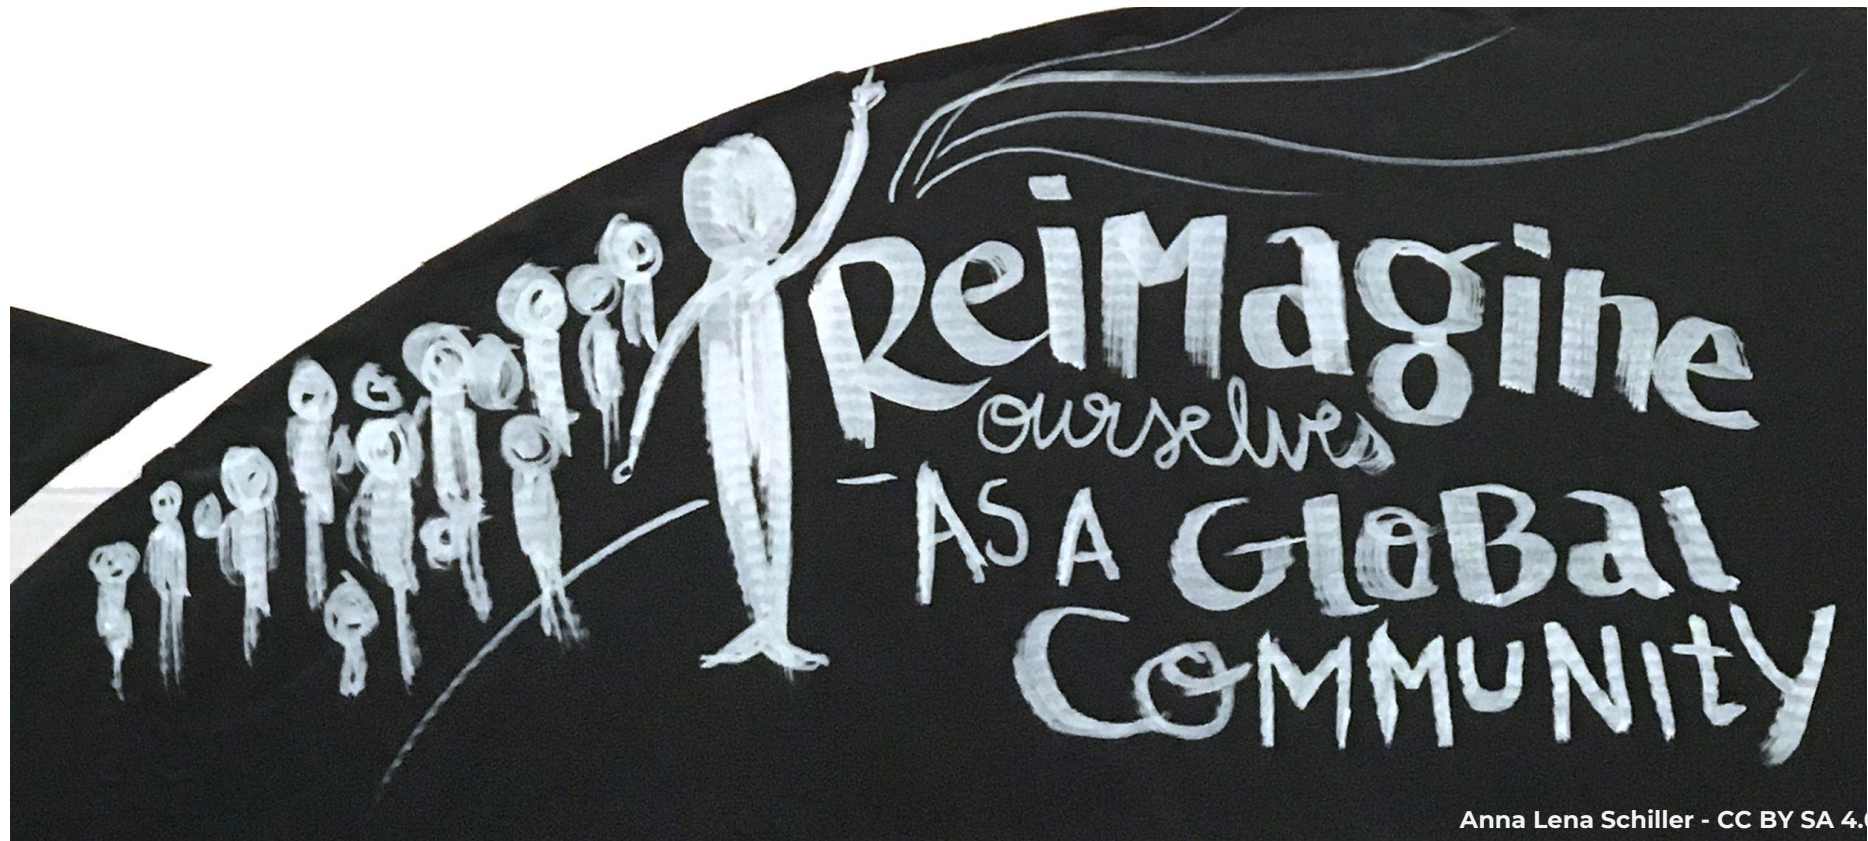 Reimagine
ourselves
- AS A GloBal
CoMMuNity
Anna Lena Schiller - CC BY SA 4.0